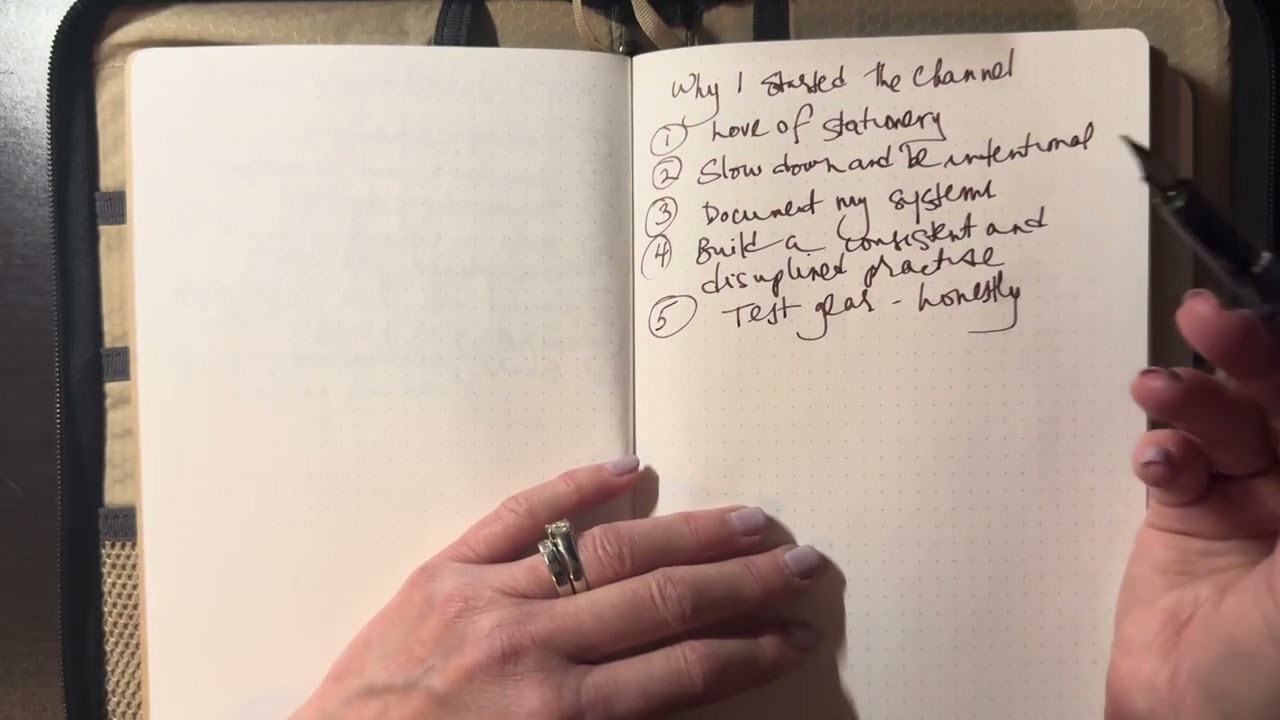 Why I started the channel
① Love of stationery
② Slow down and be intentional
③ Document my systems
④ Build a consistent and
disciplined practise
⑤ Test gear - honestly